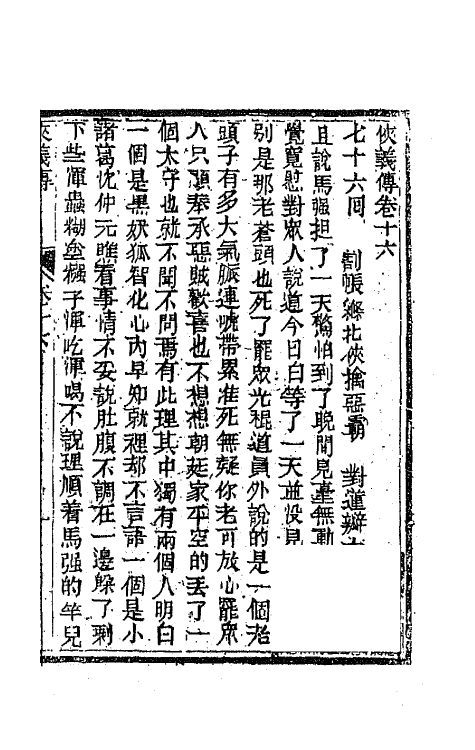 俠義傳卷十六
七十六回 割帳絛北俠擒惡霸 對蓮瓣
且說馬强担了一天驚怕到了晚間見毫無動
覺寬慰對眾人說道今日白等了一天並沒見
別是那老蒼頭也死了罷眾光棍道員外說的是一個老
頭子有多大氣脈連唬帶累准死無疑你老可放心罷眾
人只顧奉承惡賊歡喜也不想想朝廷家平空的丟了一
個太守也就不聞不問焉有此理其中獨有兩個人明白
一個是黑妖狐智化心內早知就裡却不言語一個是小
諸葛沈仲元瞧着事情不妥說肚腹不調在一邊躲了剩
下些渾蟲糊塗癡子渾吃渾喝不說理順着馬强的竿兒
俠義傳 卷十六